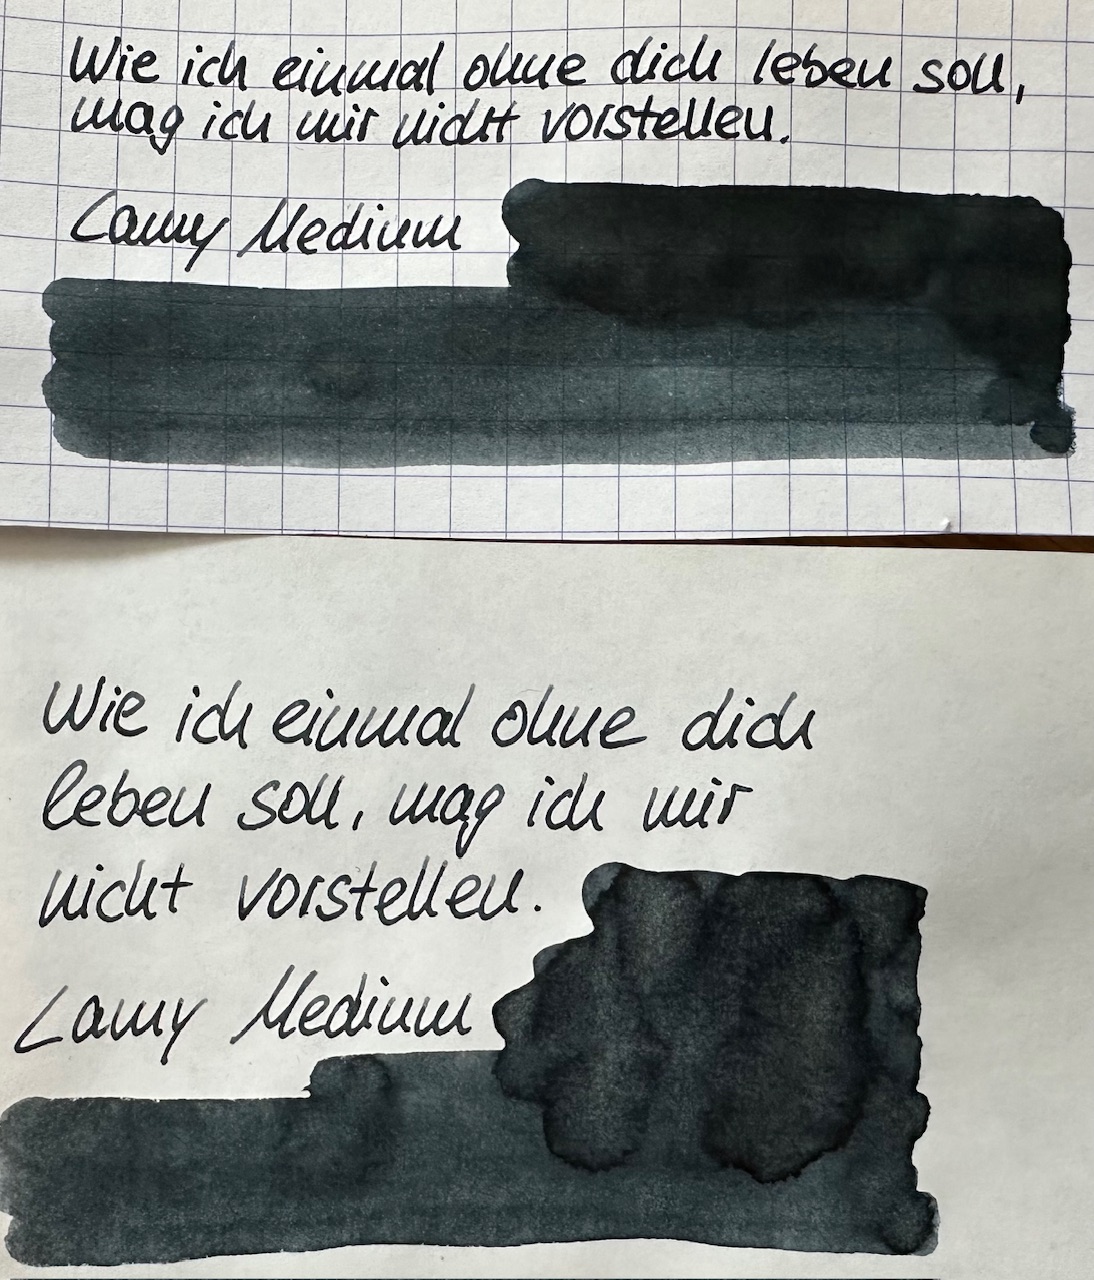 Wie ich einmal ohne dich leben soll,
mag ich mir nicht vorstellen.
Lamy Medium
Wie ich einmal ohne dich
leben soll, mag ich mir
nicht vorstellen.
Lamy Medium